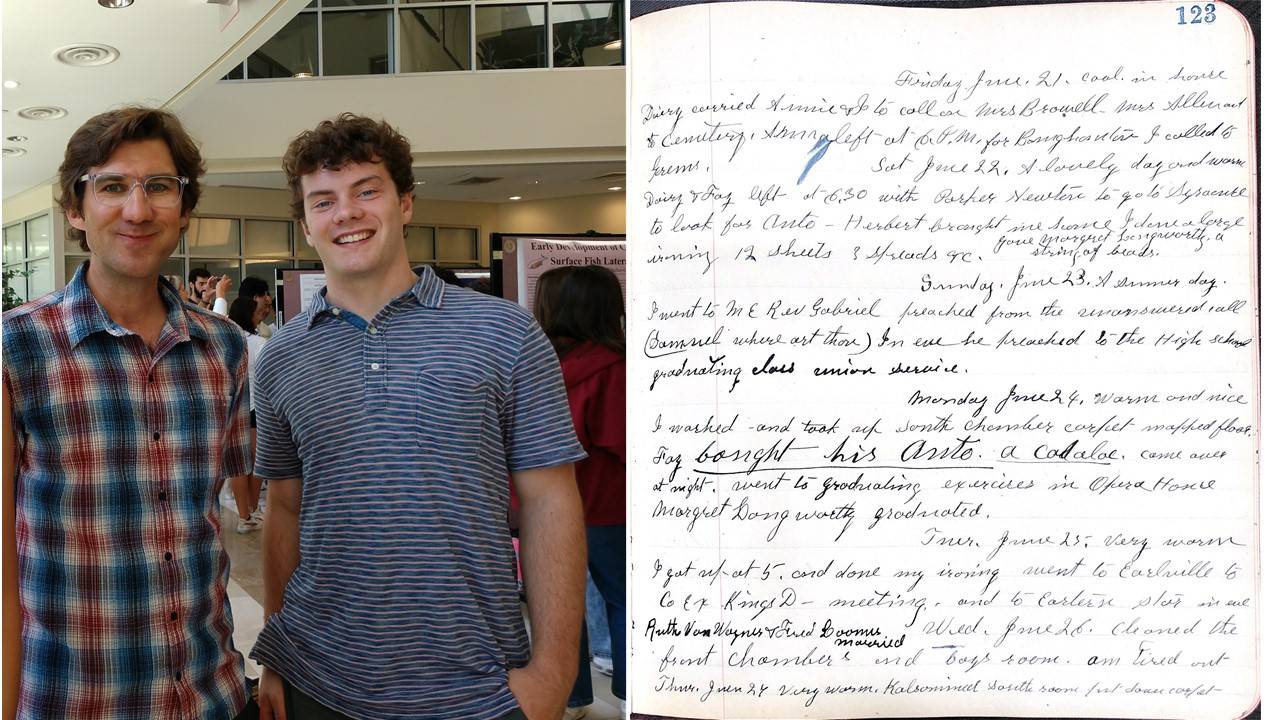 Early Development of C
Surface Fish Later
123
Friday June. 21. cool. in house
Dairy carried Annie & I to call on Mrs Browell. Mrs Allen and
& Cemetery. left at 6 P.M. for Binghamton I called to
Grems. Sat June 22. A lovely day and warm
Dairy & Fay left at 6.30 with Parker Newton to go to Syracuse
to look for Auto - Herbert brought me home I done a large
ironing 12 sheets 3 spreads &c. gave Margret Longworthy a
string of beads.
Sunday. June 23. A summer day.
I went to M E Rev Gabriel preached from the unanswered call
(Samuel where art thou) In eve he preached to the High school
graduating class union service.
Monday June 24. Warm and nice
I washed - and took up south Chamber carpet mopped floor.
Fay bought his Auto. a came over
at night. went to graduating exercises in Opera House
Margret Longworthy graduated.
Tuer. June 25. Very warm
I got up at 5. and done my ironing went to Earlville to
Co Ex Kings D - meeting. and to Eastern Star in eve
Ruth Van Wagner & Fred Loomis
married Wed. June 26. Cleaned the
front Chambers and boys room. am tired out
Thur. Juen 27 Very warm. Kalsomined South room. put down carpet-